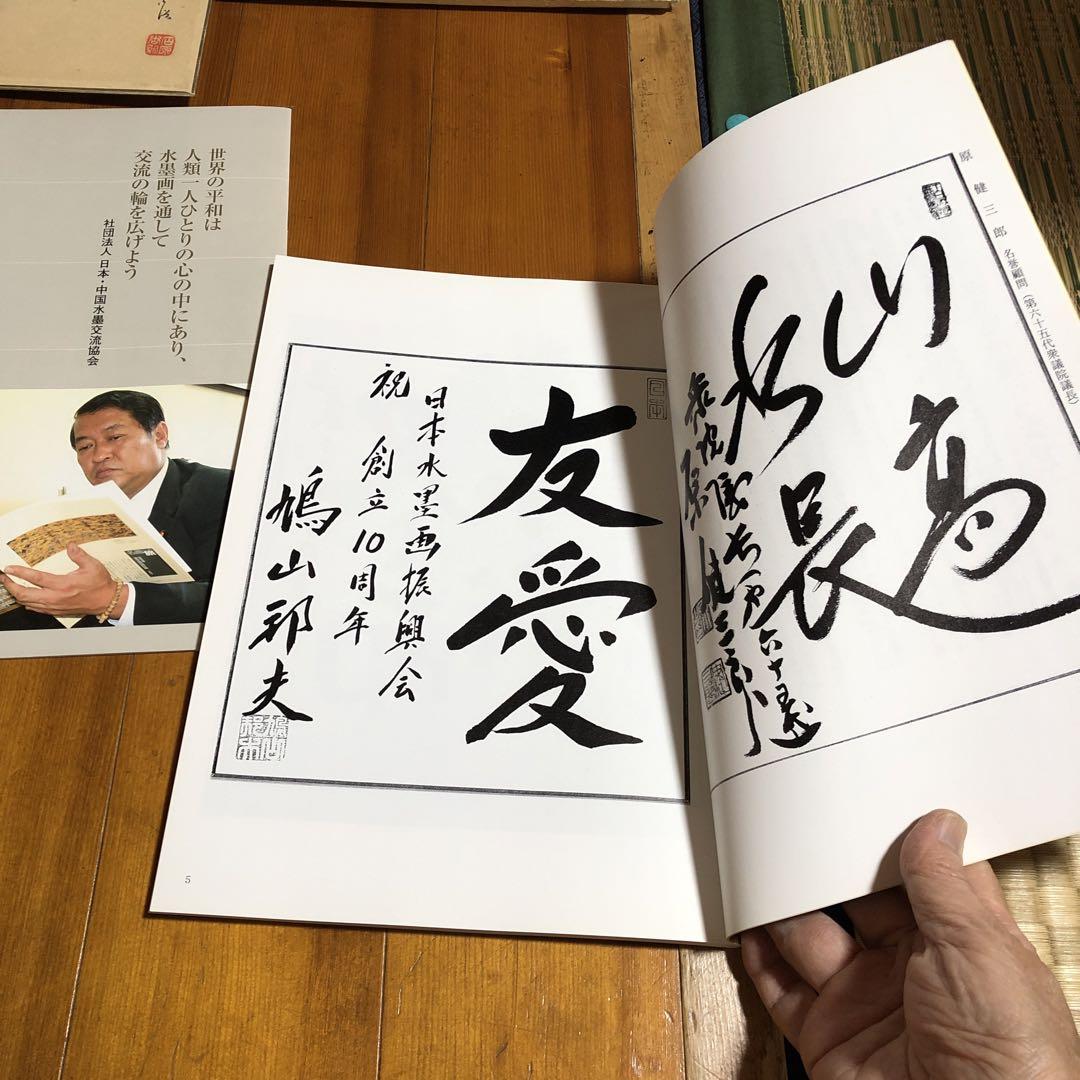 世界の平和は
人類一人ひとりの心の中にあり、
水墨画を通して
交流の輪を広げよう
社団法人 日本・中国水墨交流協会
原健三郎 名誉顧問（第六十五代衆議院議長）
山高
水長
友愛
日本水墨画振興会
祝 創立10周年
鳩山邦夫
5